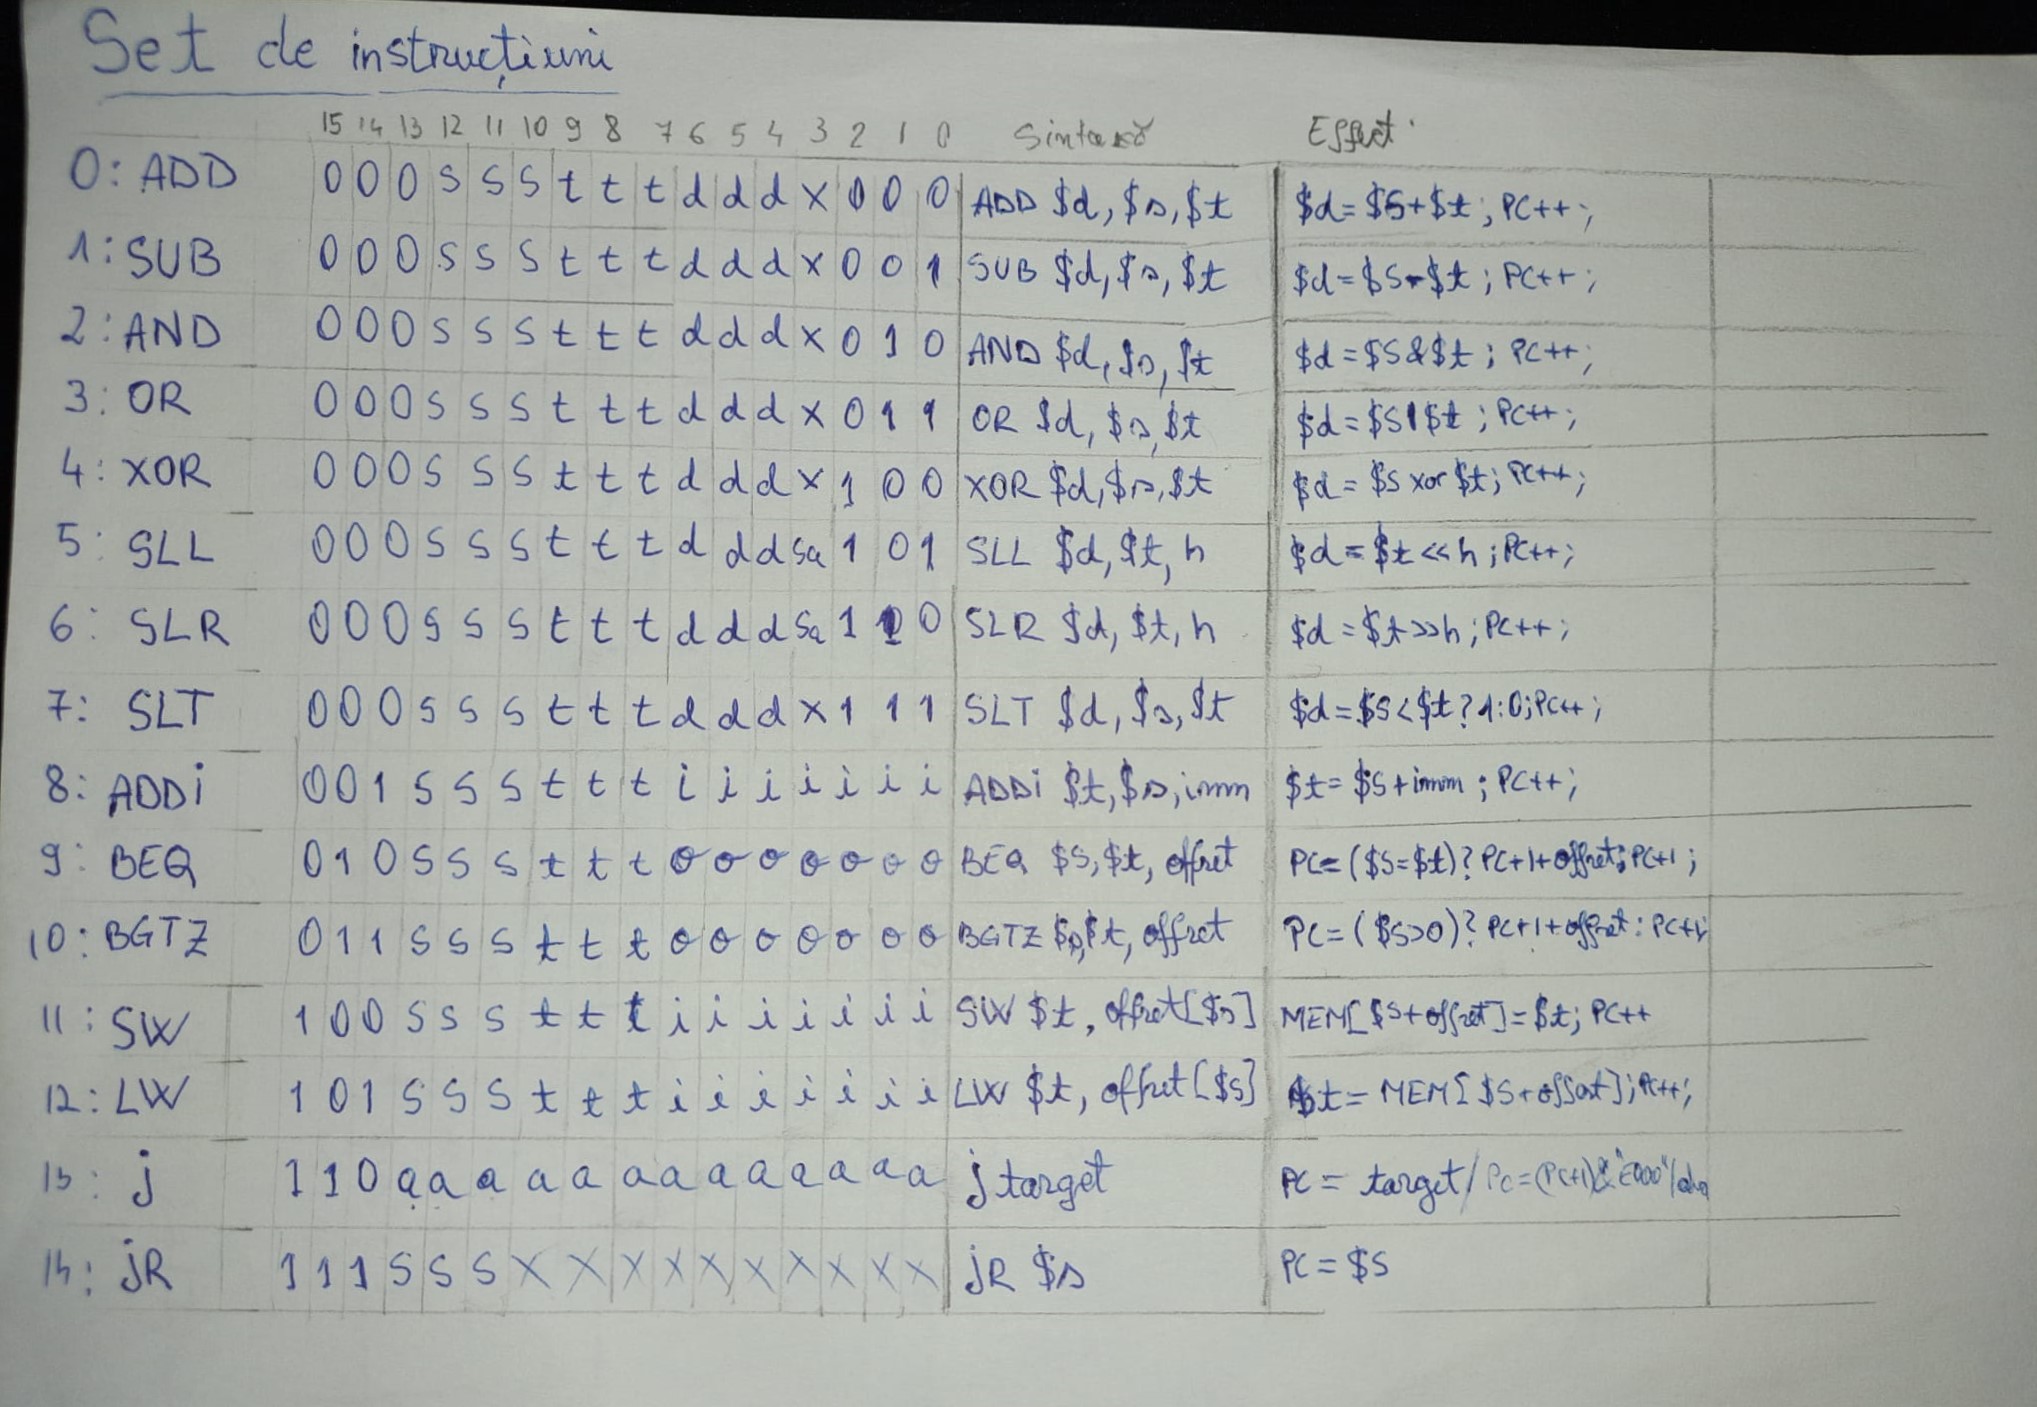 Set de instrucțiuni
15 14 13 12 11 10 9 8 7 6 5 4 3 2 1 0 Sintaxă Effect
0: ADD 0 0 0 s s s t t t d d d x 0 0 0 ADD $d, $s, $t $d = $s + $t ; PC++ ;
1: SUB 0 0 0 s s s t t t d d d x 0 0 1 SUB $d, $s, $t $d = $s - $t ; PC++ ;
2: AND 0 0 0 s s s t t t d d d x 0 1 0 AND $d, $s, $t $d = $s & $t ; PC++ ;
3: OR 0 0 0 s s s t t t d d d x 0 1 1 OR $d, $s, $t $d = $s | $t ; PC++ ;
4: XOR 0 0 0 s s s t t t d d d x 1 0 0 XOR $d, $s, $t $d = $s xor $t; PC++;
5: SLL 0 0 0 s s s t t t d d d sa 1 0 1 SLL $d, $t, h $d = $t << h ; PC++;
6: SLR 0 0 0 s s s t t t d d d sa 1 1 0 SLR $d, $t, h $d = $t >> h ; PC++ ;
7: SLT 0 0 0 s s s t t t d d d x 1 1 1 SLT $d, $s, $t $d = $s < $t ? 1:0; PC++ ;
8: ADDi 0 0 1 s s s t t t i i i i i i i ADDi $t, $s, imm $t = $s + imm ; PC++ ;
9: BEQ 0 1 0 s s s t t t o o o o o o o BEQ $s, $t, offset PC = ($s = $t) ? PC+1+offset : PC+1 ;
10: BGTZ 0 1 1 s s s t t t o o o o o o o BGTZ $s, $t, offset PC = ($s>0) ? PC+1+offset : PC+1;
11: SW 1 0 0 s s s t t t i i i i i i i SW $t, offset[$s] MEM[$s+offset] = $t; PC++
12: LW 1 0 1 s s s t t t i i i i i i i LW $t, offset[$s] $t = MEM[$s+offset]; PC++;
13: j 1 1 0 a a a a a a a a a a a a a j target PC = target / PC = (PC+1) & "E000" |
14: jR 1 1 1 s s s x x x x x x x x x x jR $s PC = $s